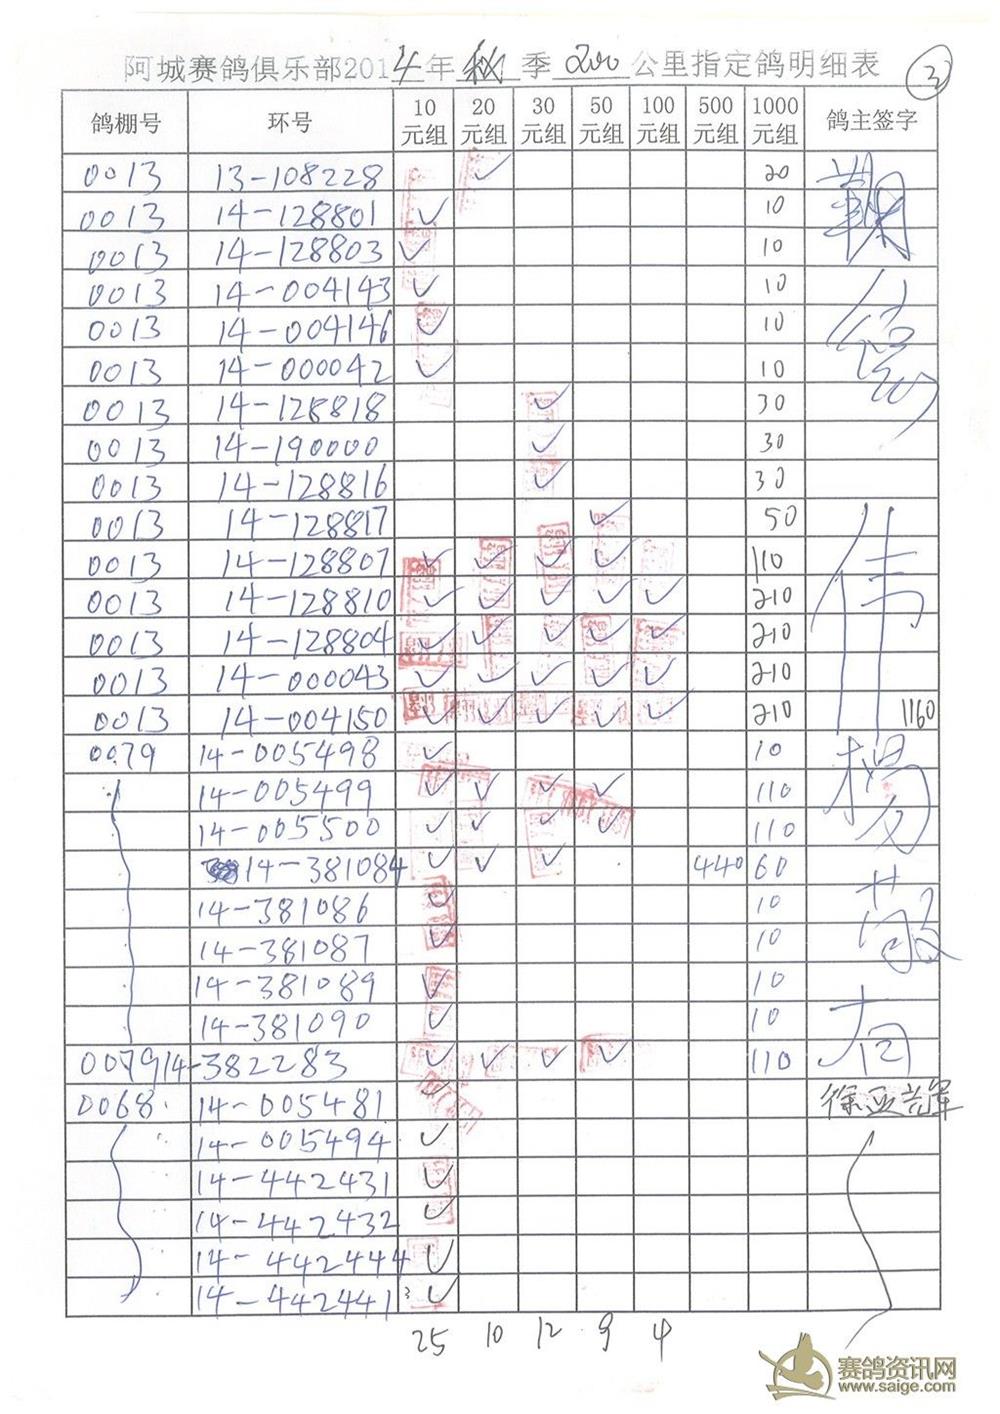 阿城赛鸽俱乐部2014年秋季200公里指定鸽明细表 3
鸽棚号 环号 10元组 20元组 30元组 50元组 100元组 500元组 1000元组 鸽主签字
0013 13-108228 ✓ 20
0013 14-128801 ✓ 10
0013 14-128803 ✓ 10
0013 14-004143 ✓ 10
0013 14-004146 ✓ 10
0013 14-000042 ✓ 10
0013 14-128818 ✓ 30
0013 14-190000 ✓ 30
0013 14-128816 ✓ 30
0013 14-128817 ✓ 50
0013 14-128807 ✓ ✓ ✓ ✓ 110
0013 14-128810 ✓ ✓ ✓ ✓ ✓ 210 伟
0013 14-128804 ✓ ✓ ✓ ✓ ✓ 210
0013 14-000043 ✓ ✓ ✓ ✓ ✓ 210
0013 14-004150 ✓ ✓ ✓ ✓ ✓ 210 1160
0079 14-005498 ✓ 10
14-005499 ✓ ✓ ✓ ✓ 110 杨
14-005500 ✓ ✓ ✓ ✓ 110
14-381084 ✓ ✓ ✓ 440 60
14-381086 ✓ 10
14-381087 ✓ 10
14-381089 ✓ 10
14-381090 ✓ 10
0079 14-382283 ✓ ✓ ✓ ✓ 110
0068 14-005481 ✓ 徐亚
14-005494 ✓
14-442431 ✓
14-442432 ✓
14-442444 ✓
14-442441 3 ✓
25 10 12 9 4
赛鸽资讯网
www.saige.com